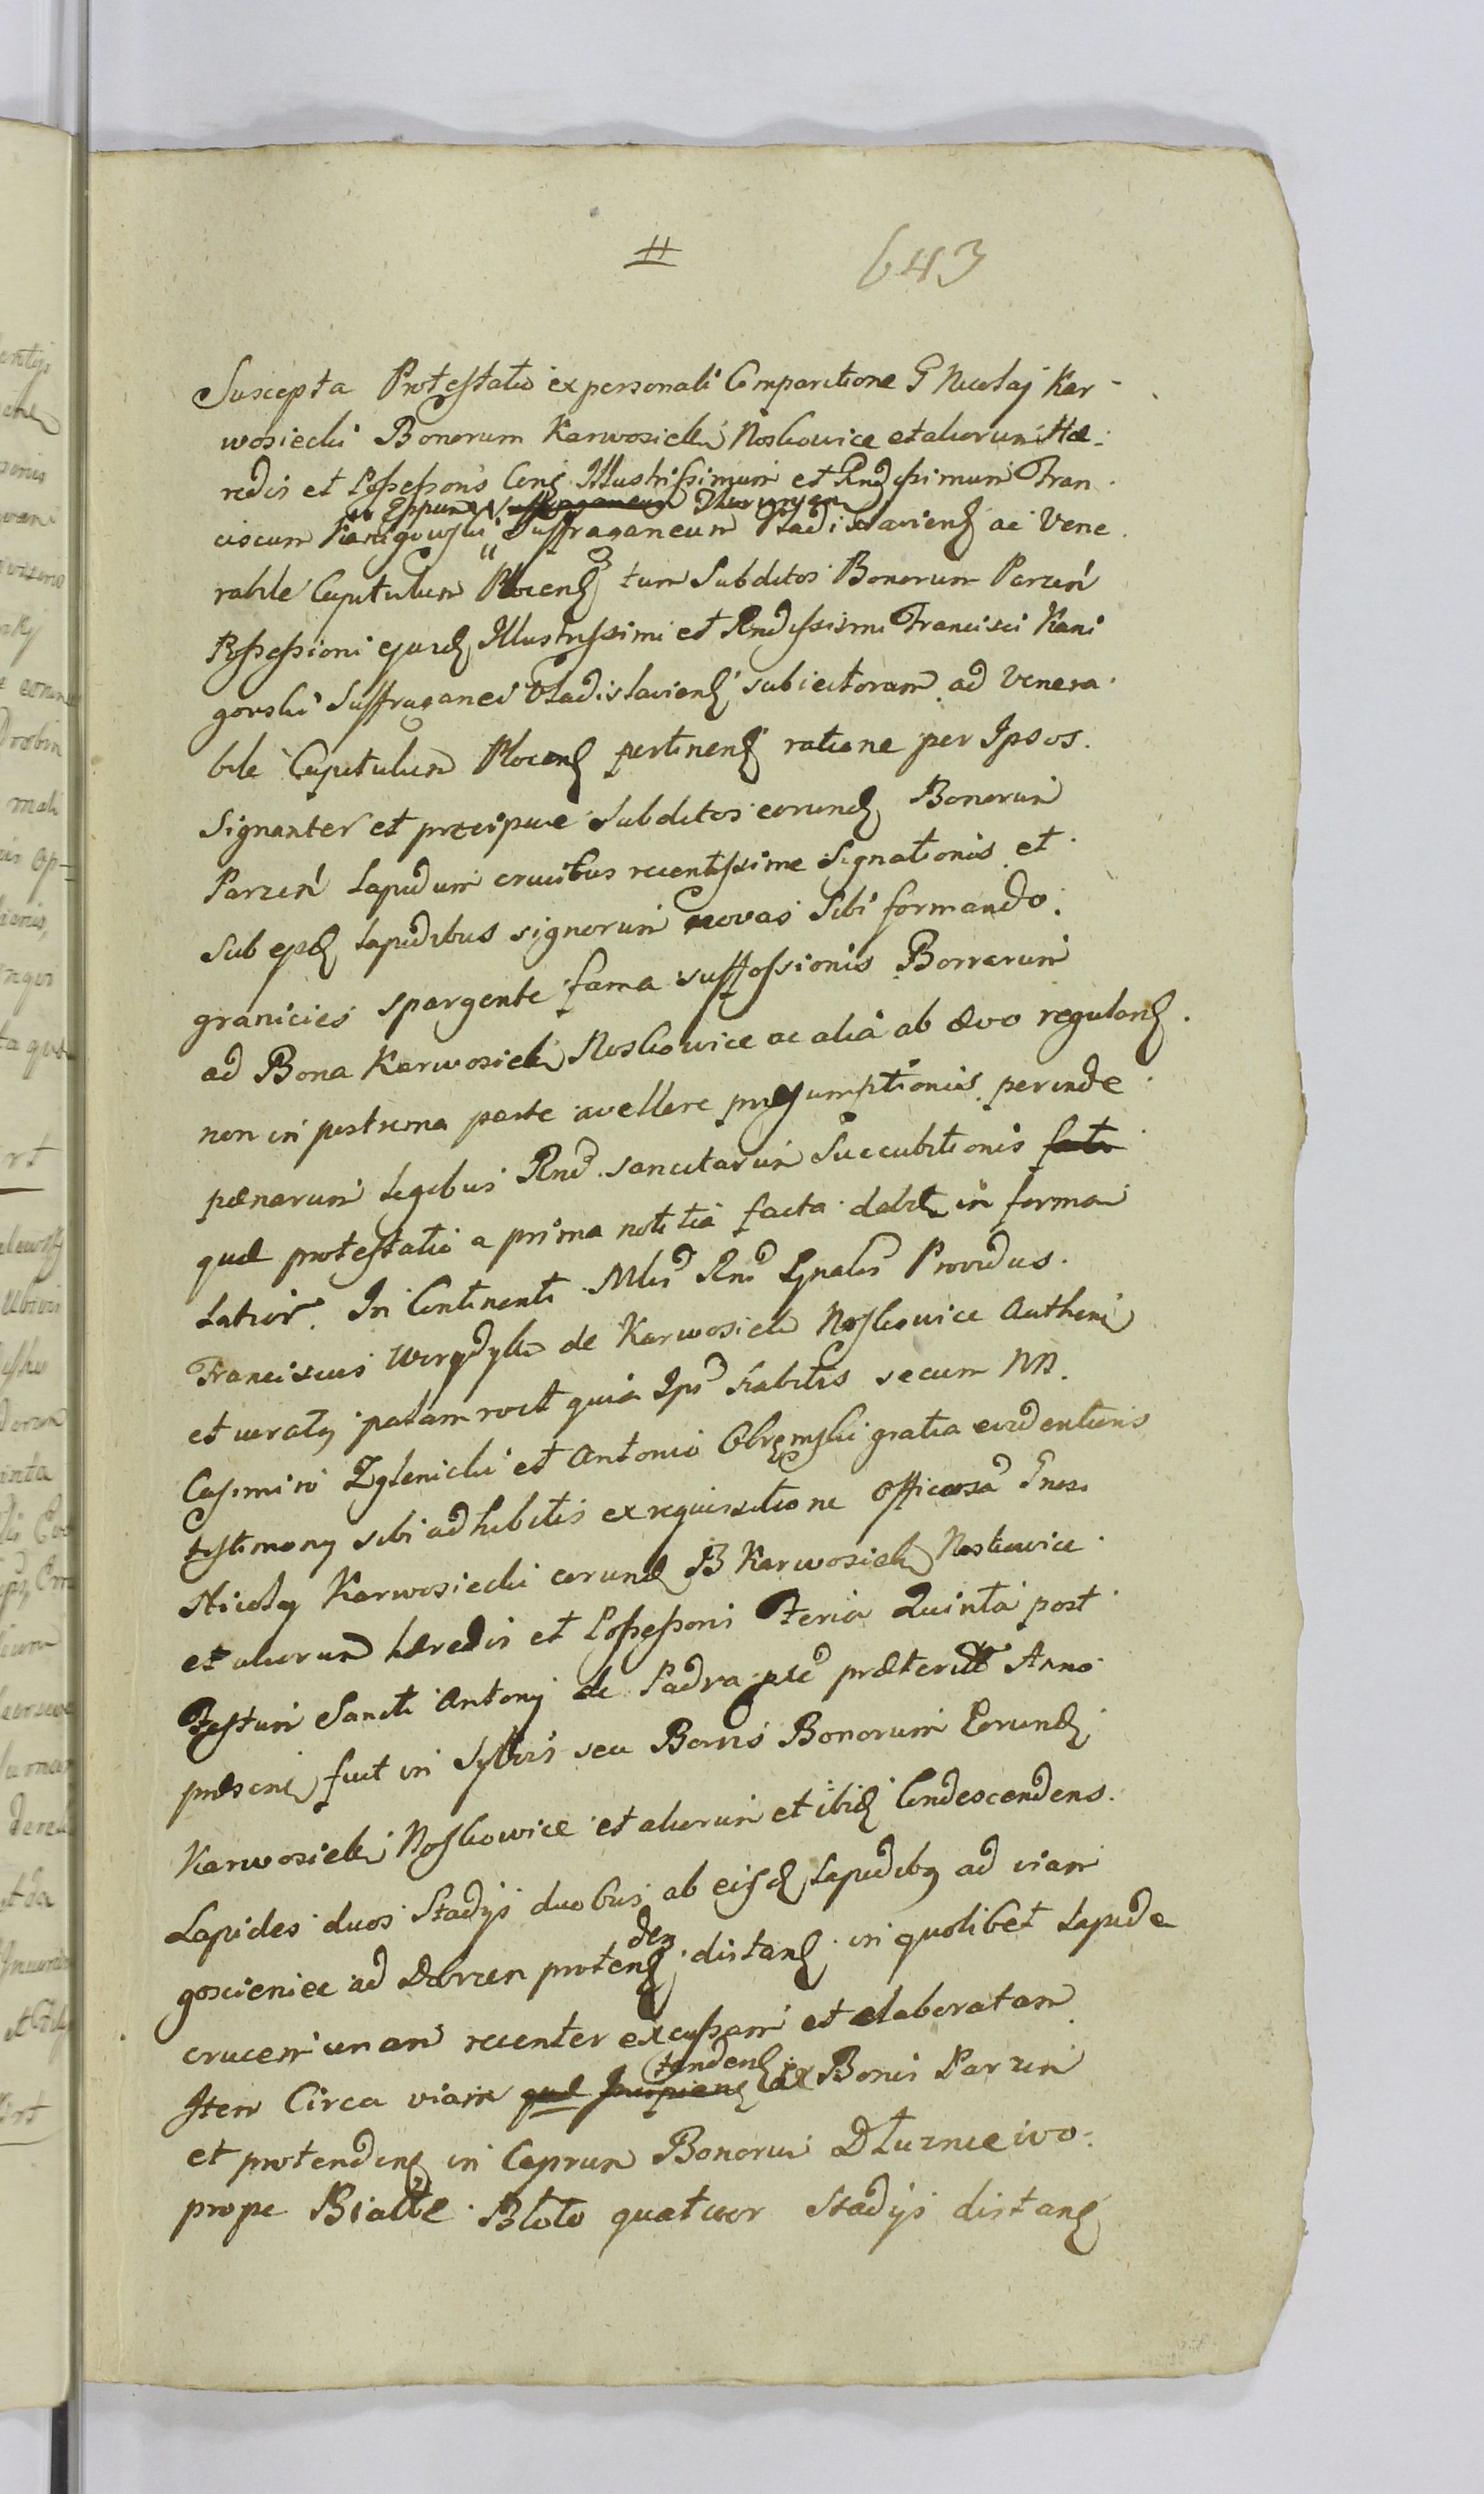 #
643
Suscepta Protestatio ex personali Comparitione G Nicolaj Kar-
wosiecki Bonorum Karwosieki Noskowice et aliorum Hæ-
redis et Possessoris Cont Illustrissimum et Rndissimum Fran
Eppum Suffraganeum
ciscum Kanigowski Suffraganeum Vladislaviens ac Vene
rabile Capitulum Plocens tum Subditos Bonorum Parzeń
Possessioni ejusd Illustrissimi et Rndissimi Francisci Kani
gorski Suffraganei Vladislaviens subiectorum ad Venera
bile Capitulum Plocens pertinens ratione per Ipsos
Signanter et præcipue Subditos eorund Bonorum
Parzeń Lapidum crucibus recentissime Signationis et
Sub lapidibus signorum novas Sibi formando
granicies spargente fama suffossionis Borrarum
ad Bona Karwosieki Noskowice ac alia ab ævo regulans
non in postrema parte avellere præsumptionis perinde
pænarum legibus Rnd sancitarum Succubitionis facto
quæ protestatio a prima notitia facta dabit in forma
Latior. In Continenti Mlis Rnd Gnalis Providus
Franciscus Werydyk de Karwosieki Noskowice Authen
et juratj palam rocit quia Ips habitis secum NN.
Casimiro Zglenicki et Antonio Obrempski gratia evidentioris
testimony sibi adhibitis ex requisitione Officiosa Gnosi
Nicolaj Karwosiecki eorund B Karwosieki Noskowice
et aliorum hæredis et Possessoris Feria Quinta post
Festum Sancti Antonj de Padva pte præterit Anno
præsent fuit in Sylvis seu Borris Bonorum Eorund
Karwosieki Noskowice et aliorum et ibid Condescendens
Lapides duos Stadijs duobus ab eisd Lapidibq ad viam
den
gosciniec ad Dobrzen protens distans in quolibet Lapide
crucem unam recenter excussam et elaboratam
tendens
Item Circa viam quæ Incipiens ex Bonis Parzen
et protendens in Caprun Bonoru Dłuzniewo
prope Białłe Błoto quatuor Stadijs distans